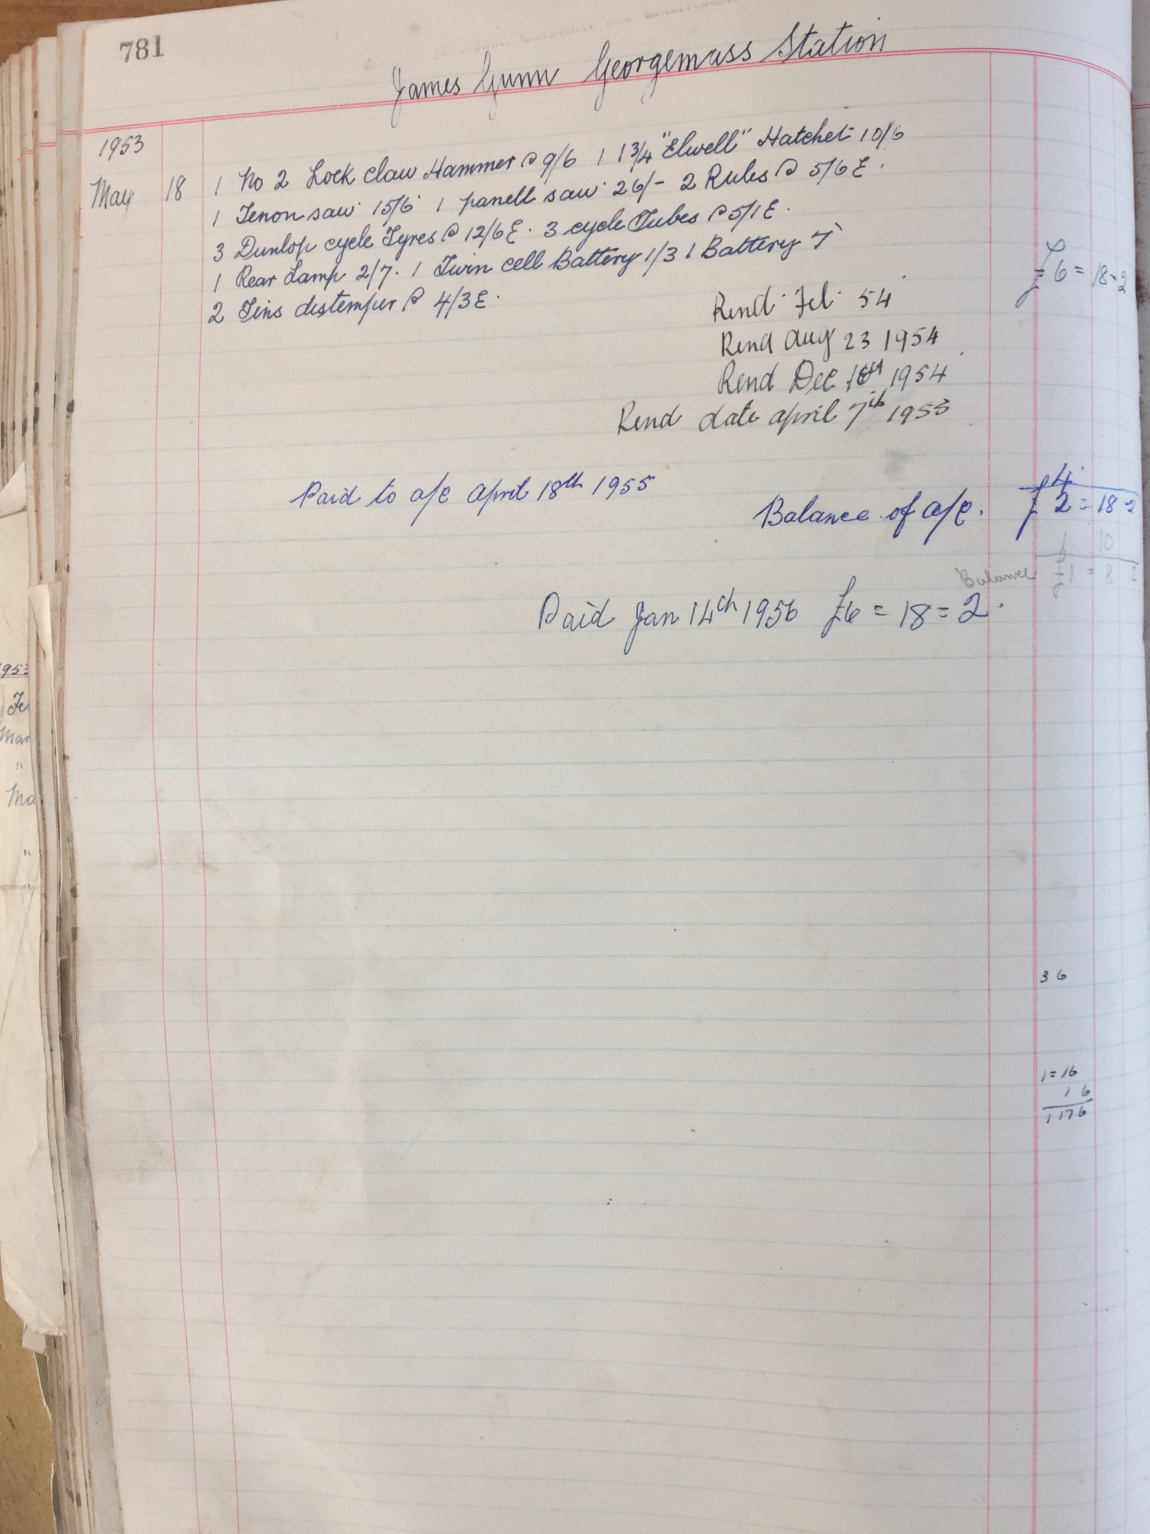 781
James Gunn Georgemass Station
1953
May 18 1 No 2 Lock claw Hammer @ 9/6 1 1 3/4 "Elwell" Hatchet 10/6
1 Tenon saw 15/6 1 panell saw 26/- 2 Rules @ 5/6 E.
3 Dunlop cycle Tyres @ 12/6 E. 3 cycle Tubes @ 5/1 E.
1 Rear Lamp 2/7. 1 Twin cell Battery 1/3 1 Battery 7
2 Tins distemper @ 4/3 E. £6 = 18-2
Rend Feb 54
Rend Aug 23 1954
Rend Dec 1954
Rend date april 7th 1953
Paid to a/c April 18th 1955 4
Balance of a/c. £2 = 18-2
1 10
Balance £1 = 8 2
Paid Jan 14th 1956 £6 = 18 = 2.
953
Fe
Mar
"
Ma
"
"
3 6
1=16
1 6
1176